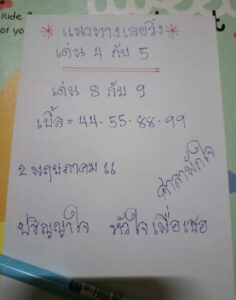 Ride
of yo
* แนวทางเลขวิ่ง *
เด่น 4 กับ 5
เด่น 8 กับ 9
เบิ้ล = 44-55-88-99
2 พฤษภาคม 61
ศาลาพักใจ
ปริญญาใจ หัวใจเพื่อเธอ